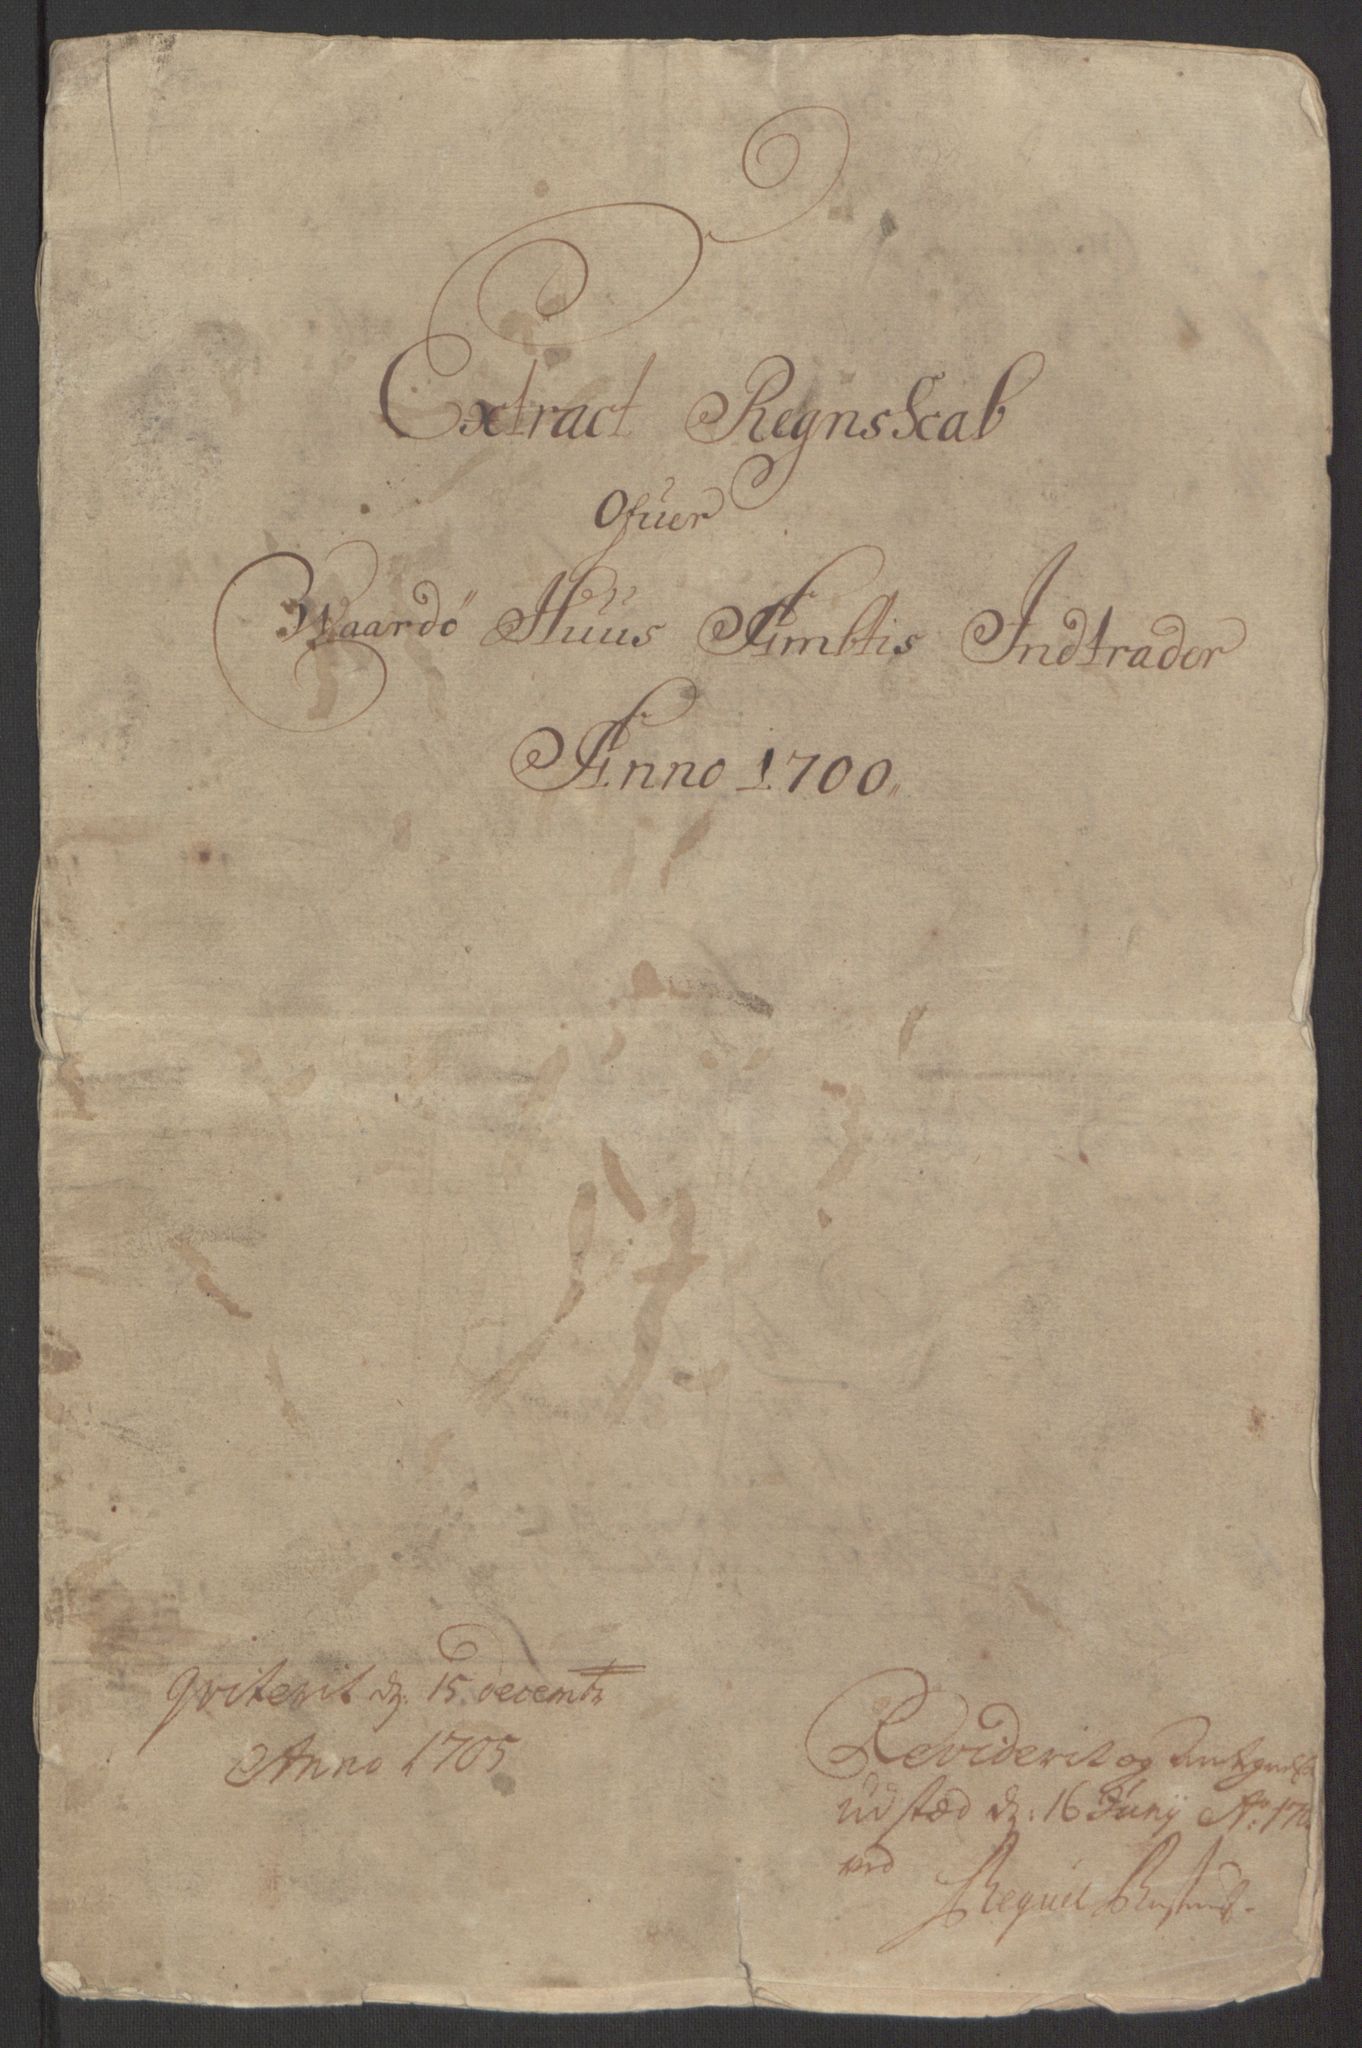 Extract Regnsscab
Ofuer
Waardö Huus Ambtis Indtrader
Anno 1700
Qviterit d. 15 decembr
Anno 1705
Revideret og
udstæd d. 16 Junij Ao. 170
ved